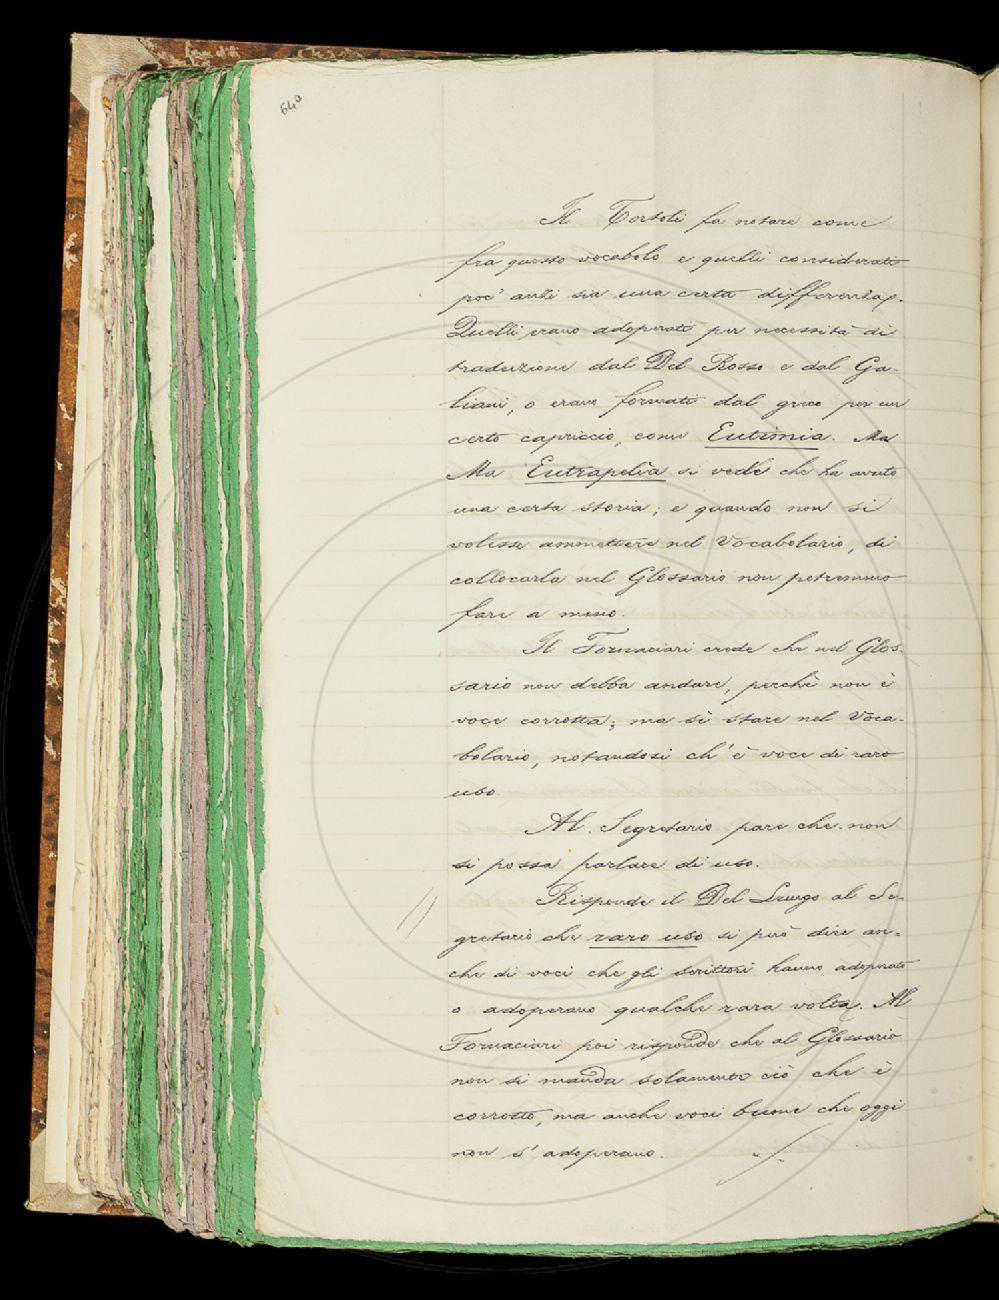 640
Il Tortoli fa notare come
fra questo vocabolo e quelli considerati
poc' anzi sia una certa differenza.
Quelli erano adoperati per necessità di
traduzione dal Del Rosso e dal Ga-
liani, o erano formati dal greco per un
certo capriccio, come Eutimia. Ma
Ma Eutrapelìa si vede che ha avuto
una certa storia; e quando non si
volesse ammettere nel Vocabolario, di
collocarla nel Glossario non potremmo
fare a meno.
Il Fornaciari crede che nel Glos-
sario non debba andare, perchè non è
voce corrotta; ma sì stare nel Voca-
bolario, notandosi ch' è voce di raro
uso.
Al Segretario pare che non
si possa parlare di uso.
Risponde il Del Lungo al Se-
gretario che raro uso si può dire an-
che di voci che gli scrittori hanno adoperato
o adoperano qualche rara volta. Al
Fornaciari poi risponde che al Glossario
non si manda solamente ciò che è
corrotto, ma anche voci buone che oggi
non s' adoperano.